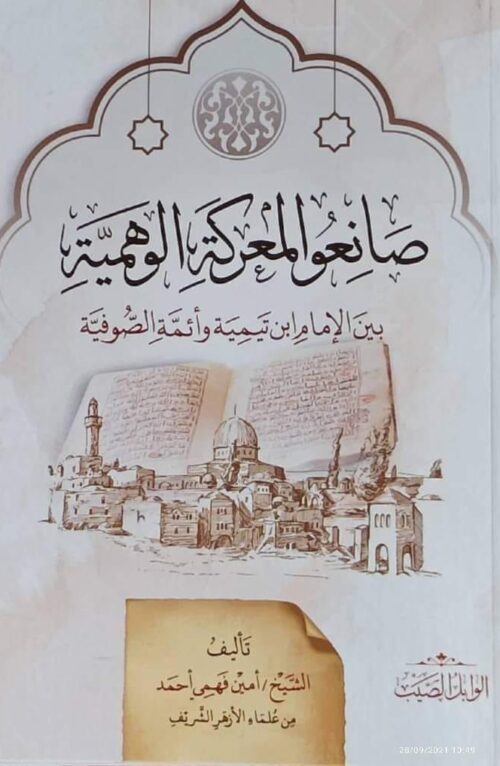 صَانِعُو المَعْركَةِ الوَهَمِيَّةِ
بينَ الإمَامِ ابن تَيمِية وأئمَّةِ الصُّوفيَّة
تَأليفُ
الشَّيْخ / أمين فَهمِي أحمَد
مِن عُلمَاءِ الأزهَرِ الشَّرِيفِ
الوَابِل الصَّيِّب
28/09/2021 10:49